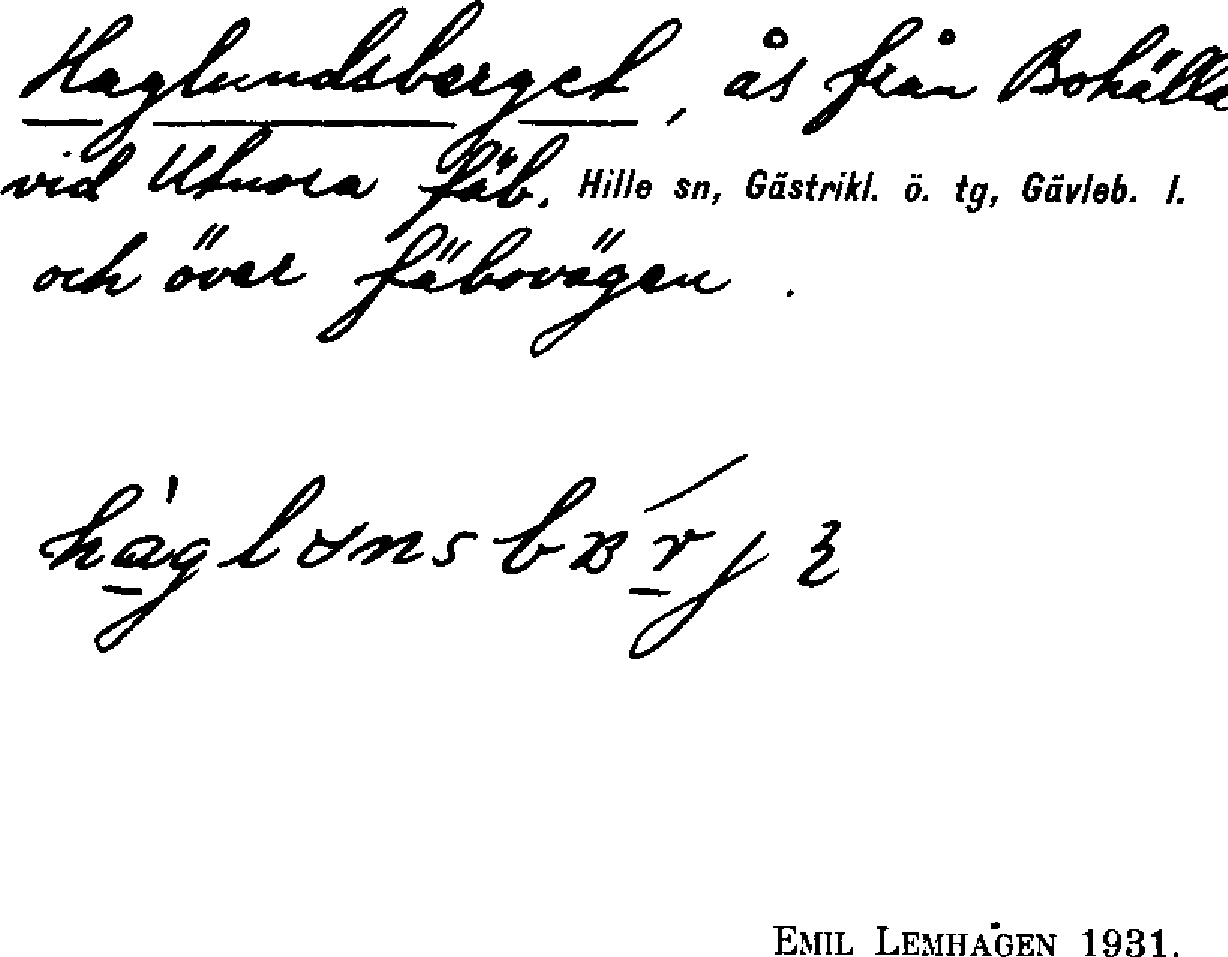 Haglundsberget, ås från Bohälla
vid Utnora fäb. Hille sn, Gästrikl. ö. tg, Gävleb. l.
och över fäbovägen .
EMIL LEMHAGEN 1931.